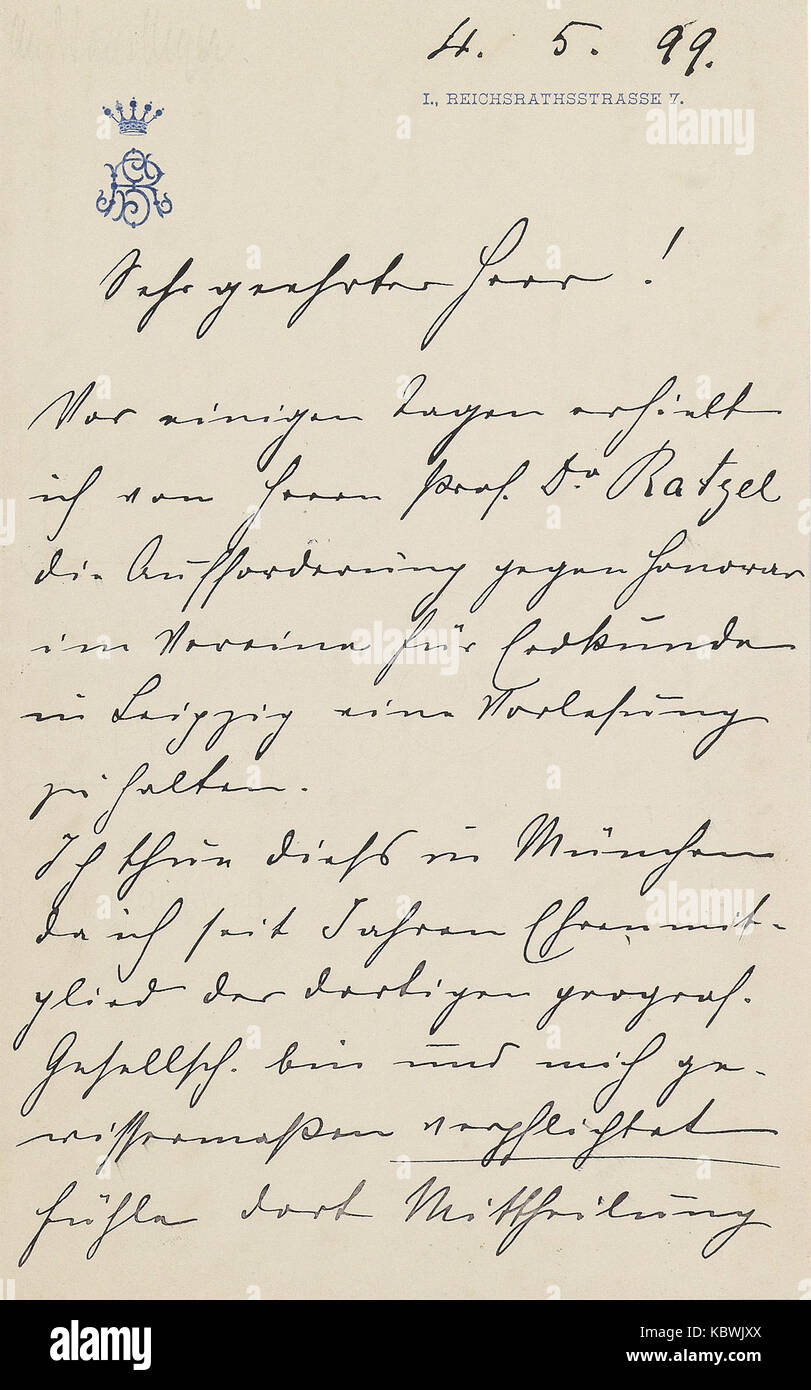 4. 5. 99.
I., REICHSRATHSSTRASSE 7.
Sehr geehrter Herr!
Vor einigen Tagen erhielt
ich von Herrn Prof. Dr Ratzel
die Aufforderung gegen Honorar
im Vereine für Erdkunde
in Leipzig eine Vorlesung
zu halten.
Ich thue dieß in München
da ich seit Jahren Ehrenmit-
glied der dortigen geograf.
Gesellsch. bin und mich ge-
wissermaßen verpflichtet
fühle dort Mittheilung
alamy
Image ID: KBWJXX
www.alamy.com